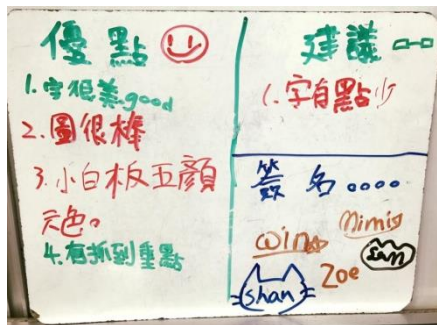 優點
1.字很美good
2.圖很棒
3.小白板五顏
六色。
4.有抓到重點
建議
1.字有點少
簽名....
win
mimi
Sam
Zoe
shan